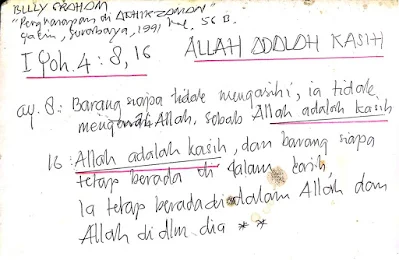 BILLY GRAHAM
"Pengharapan di AKHIR ZAMAN"
Yakin, Surabaya, 1991 hl. 56 B.
I Yoh. 4 : 8, 16 ALLAH ADALAH KASIH
ay. 8 : Barang siapa tidak mengasihi, ia tidak
mengenal Allah, sebab Allah adalah kasih
16 : Allah adalah kasih, dan barang siapa
tetap berada di dalam kasih,
Ia tetap berada di dalam Allah dan
Allah di dlm dia * *